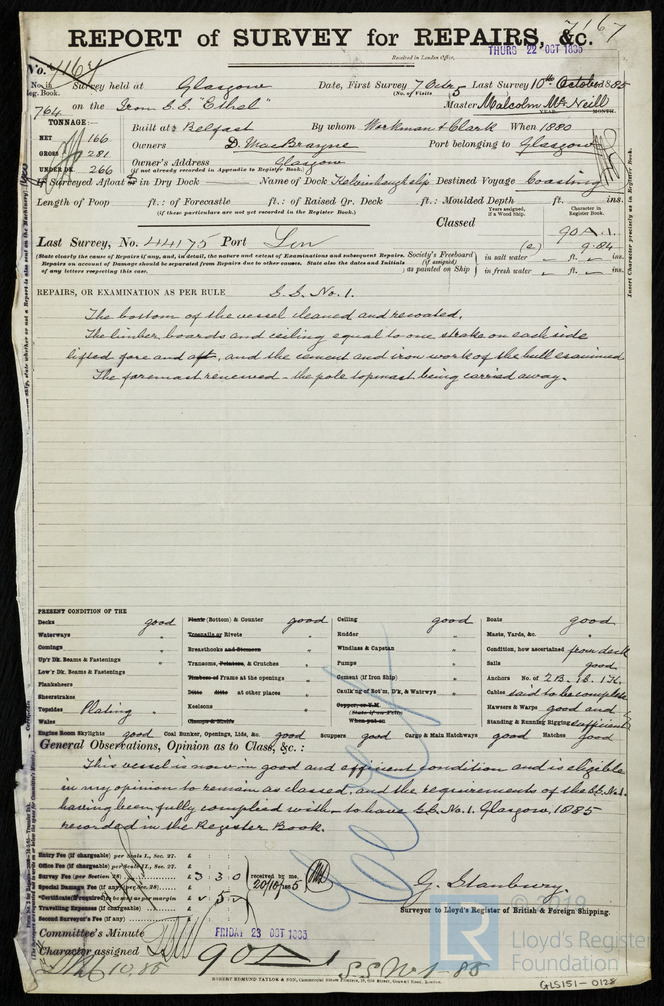 7167
REPORT of SURVEY for REPAIRS, &c.
Received in London Office,
THURS 22 OCT 1885
No. 7164
No. in Reg. Book. Survey held at Glasgow Date, First Survey 7 Octr Last Survey 10th October 1885
(No. of Visits 5
764 on the Iron S.S. "Ethel" Master Malcolm McNeill
TONNAGE:— YEAR. MONTH.
NET 166 Built at Belfast By whom Workman & Clark When 1880
GROSS 281 Owners D. MacBrayne Port belonging to Glasgow
UNDER DK. 266 Owner's Address Glasgow
(if not already recorded in Appendix to Register Book.)
If Surveyed Afloat or in Dry Dock Name of Dock Kelvinhaugh slip Destined Voyage Coasting
Length of Poop ft.: of Forecastle ft.: of Raised Qr. Deck ft.: Moulded Depth ft. ins.
(if these particulars are not yet recorded in the Register Book.)
Years assigned, if a Wood Ship. Character in Register Book.
Classed 90 A.1.
Last Survey, No. 44175 Port Lon
(a) 9.84
(State clearly the cause of Repairs if any, and, in detail, the nature and extent of Examinations and subsequent Repairs.
Repairs on account of Damage should be separated from Repairs due to other causes. State also the dates and Initials
of any letters respecting this case.
Society's Freeboard (if assigned) as painted on Ship
in salt water ft. ins.
in fresh water ft. ins.
Insert Character precisely as in Register Book.
REPAIRS, OR EXAMINATION AS PER RULE S.S. No. 1.
The bottom of the vessel cleaned and recoated.
The limber boards and ceiling equal to one strake on each side
lifted fore and aft, and the cement and iron work of the hull examined
The foremast renewed – the pole topmast being carried away.
PRESENT CONDITION OF THE
Decks good
Waterways "
Comings "
Up'r Dk. Beams & Fastenings "
Low'r Dk. Beams & Fastenings
Planksheers
Sheerstrakes
Topsides Plating "
Wales
Plank (Bottom) & Counter good
Treenails or Rivets "
Breasthooks and Stemson "
Transoms, Pointers, & Crutches "
Timbers of Frame at the openings "
Ditto ditto at other places "
Keelsons "
Clamps & Shelfs
Ceiling good
Rudder "
Windlass & Capstan "
Pumps "
Cement (if Iron Ship) "
Caulk'ng of Bot'm, D'k, & Waterwys "
Copper, or Y.M.
(State if on Felt)
When put on
Boats good
Masts, Yards, &c. "
Condition, how ascertained from deck
Sails good
Anchors No. of 2 B. 1 S. 1 K.
Cables said to be complete
Hawsers & Warps good and
Standing & Running Rigging sufficient
Engine Room Skylights good Coal Bunker, Openings, Lids, &c. good Scuppers good Cargo & Main Hatchways good Hatches good
General Observations, Opinion as to Class, &c. :
This vessel is now in good and efficient condition and is eligible
in my opinion to remain as classed, and the requirements of the S.S. No. 1.
having been fully complied with to have S.S. No. 1. Glasgow, 1885
recorded in the Register Book.
Entry Fee (if chargeable) per Scale I., Sec. 27. £ : :
Office Fee (if chargeable) per Scale II., Sec. 27. £ : :
Survey Fee (per Section 28) £ 3 : 3 : 0
Special Damage Fee (if any) (per Sec. 28) £ : :
*Certificate (if required) to go as per margin £ : 5 :
Travelling Expenses (if chargeable) £ : :
Second Surveyor's Fee (if any) £ : :
received by me, 20/10/1885
G. Stanbury.
Surveyor to Lloyd's Register of British & Foreign Shipping.
Committee's Minute FRIDAY 23 OCT 1885
Character assigned 90 A 1
10.85
S.S. No 1-85
ROBERT EDMUND TAYLOR & SON, Commercial Steam Printers, 19, Old Street, Goswell Road, London.
© 2019
LR
Lloyd's Register
Foundation
GLS151-0128